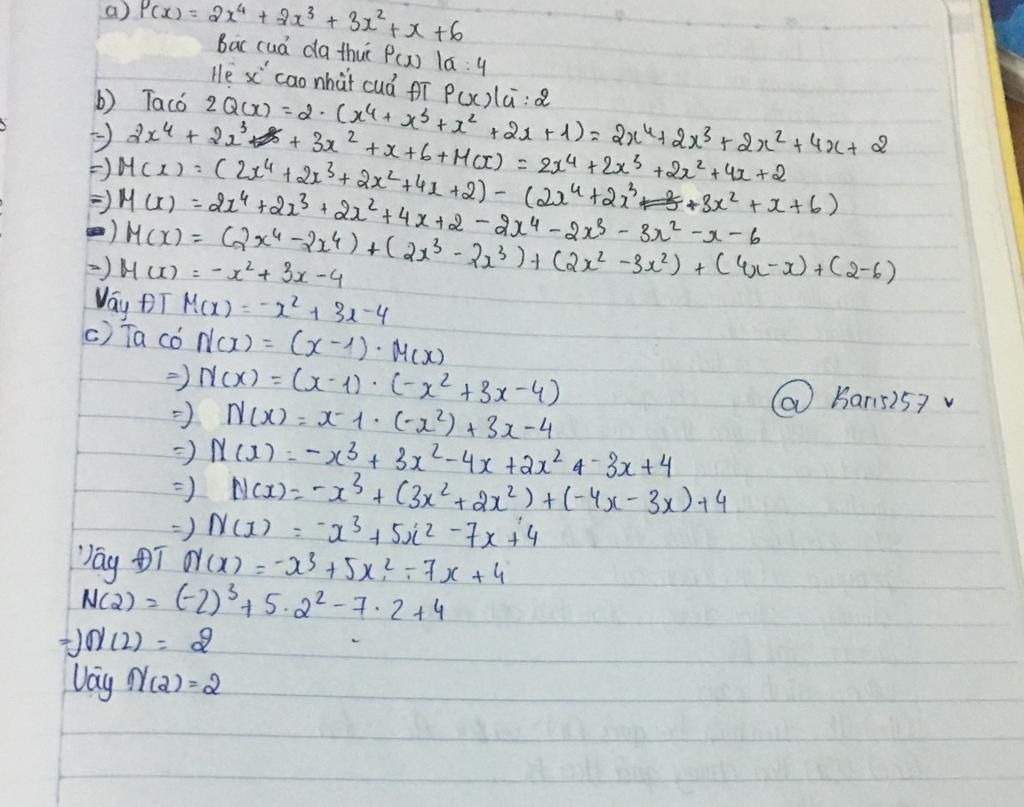 a) P(x) = 2x⁴ + 2x³ + 3x² + x + 6
Bậc cuả đa thức P(x) là : 4
Hệ số cao nhất cuả ĐT P(x) là : 2
b) Ta có 2Q(x) = 2 · (x⁴ + x³ + x² + 2x + 1) = 2x⁴ + 2x³ + 2x² + 4x + 2
=) 2x⁴ + 2x³ + 3x² + x + 6 + M(x) = 2x⁴ + 2x³ + 2x² + 4x + 2
=) M(x) = (2x⁴ + 2x³ + 2x² + 4x + 2) - (2x⁴ + 2x³ + 3x² + x + 6)
=) M(x) = 2x⁴ + 2x³ + 2x² + 4x + 2 - 2x⁴ - 2x³ - 3x² - x - 6
=) M(x) = (2x⁴ - 2x⁴) + (2x³ - 2x³) + (2x² - 3x²) + (4x - x) + (2 - 6)
=) M(x) = -x² + 3x - 4
Vậy ĐT M(x) = -x² + 3x - 4
c) Ta có N(x) = (x - 1) · M(x)
=) N(x) = (x - 1) · (-x² + 3x - 4)
@ Baris257
=) N(x) = x - 1 · (-x²) + 3x - 4
=) N(x) = -x³ + 3x² - 4x + 2x² + -3x + 4
=) N(x) = -x³ + (3x² + 2x²) + (-4x - 3x) + 4
=) N(x) = -x³ + 5x² - 7x + 4
Vậy ĐT N(x) = -x³ + 5x² - 7x + 4
N(2) = (-2)³ + 5 · 2² - 7 · 2 + 4
=) N(2) = 2
Vậy N(2) = 2